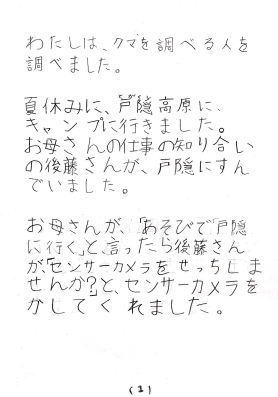 わたしは、クマを調べる人を
調べました。
夏休みに、戸隠高原に、
キャンプに行きました。
お母さんの仕事の知り合い
の後藤さんが、戸隠にすん
でいました。
お母さんが、「あそびで戸隠
に行く」と、言ったら後藤さん
が、「センサーカメラをせっちしま
せんか?」と、センサーカメラを
かしてくれました。
(1)